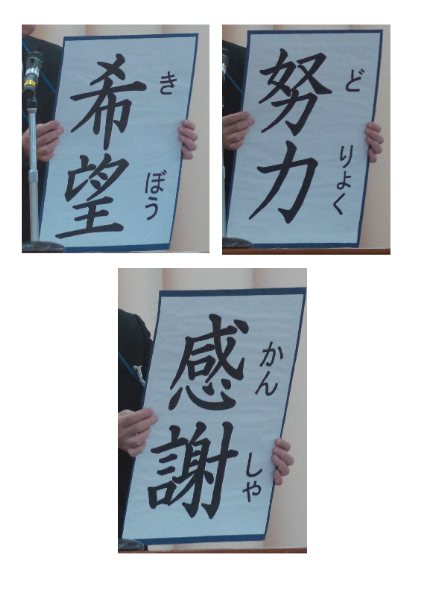 希望
きぼう
努力
どりょく
感謝
かんしゃ